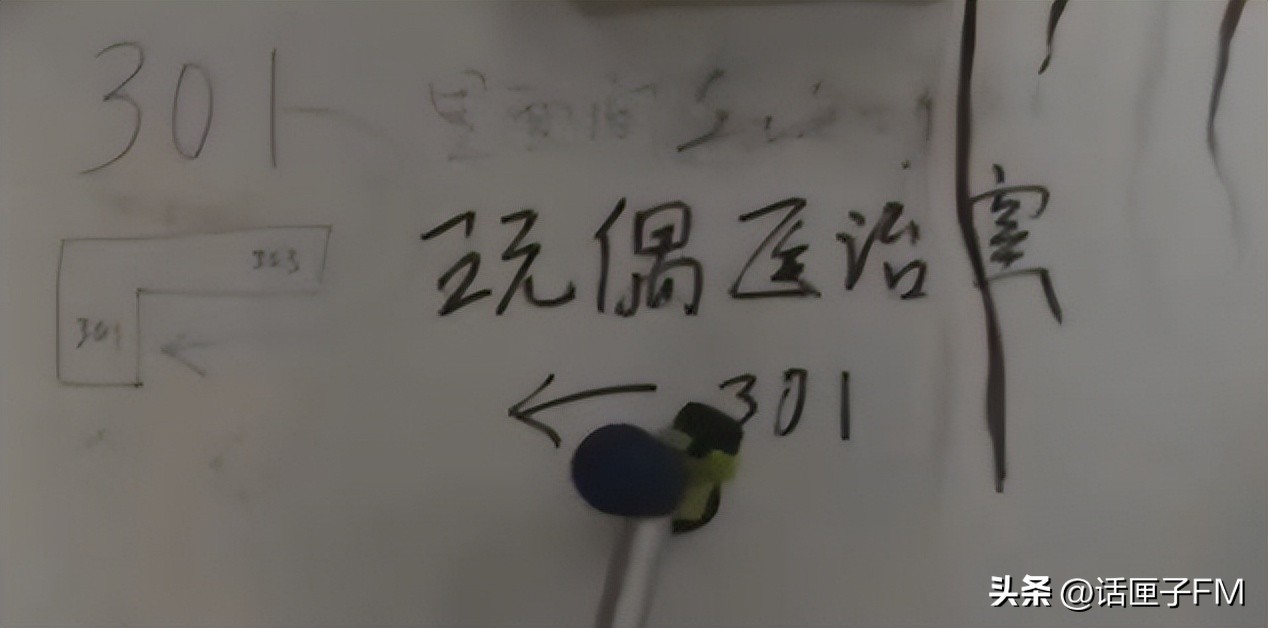 301
303
玩偶医治室
301
← 301
头条 @话匣子FM